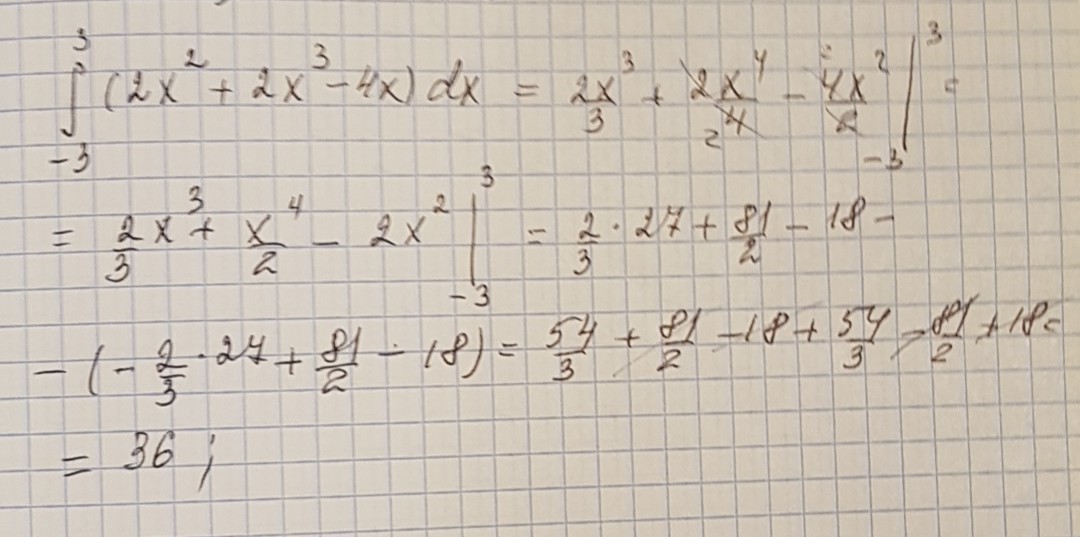 ∫₋₃³ (2x² + 2x³ - 4x) dx = 2x³/3 + 2x⁴/4 2 - 4x²/2 |₋₃³ =
= 2/3 x³ + x⁴/2 - 2x² |₋₃³ = 2/3 · 27 + 81/2 - 18 -
- (- 2/3 · 27 + 81/2 - 18) = 54/3 + 81/2 - 18 + 54/3 - 81/2 + 18 =
= 36 ;